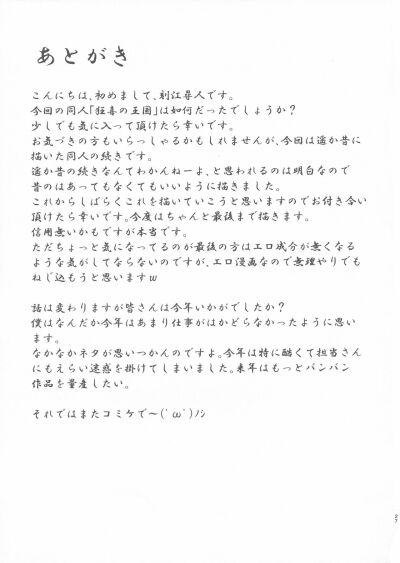 あとがき
こんにちは、初めまして、刻江尋人です。
今回の同人「狂喜の王国」は如何だったでしょうか?
少しでも気に入って頂けたら幸いです。
お気づきの方もいらっしゃるかもしれませんが、今回は遥か昔に
描いた同人の続きです。
遥か昔の続きなんてわかんねーよ、と思われるのは明白なので
昔のはあってもなくてもいいように描きました。
これからしばらくこれを描いていこうと思いますのでお付き合い
頂けたら幸いです。今度はちゃんと最後まで描きます。
信用無いかもですが本当です。
ただちょっと気になってるのが最後の方はエロ成分が無くなる
ような気がしてならないのですが、エロ漫画なので無理やりでも
ねじ込もうと思いますw
話は変わりますが皆さんは今年いかがでしたか?
僕はなんだか今年はあまり仕事がはかどらなかったように思い
ます。
なかなかネタが思いつかんのですよ。今年は特に酷くて担当さん
にもえらい迷惑を掛けてしまいました。来年はもっとバンバン
作品を量産したい。
それではまたコミケで~(`ω´)ノシ
27